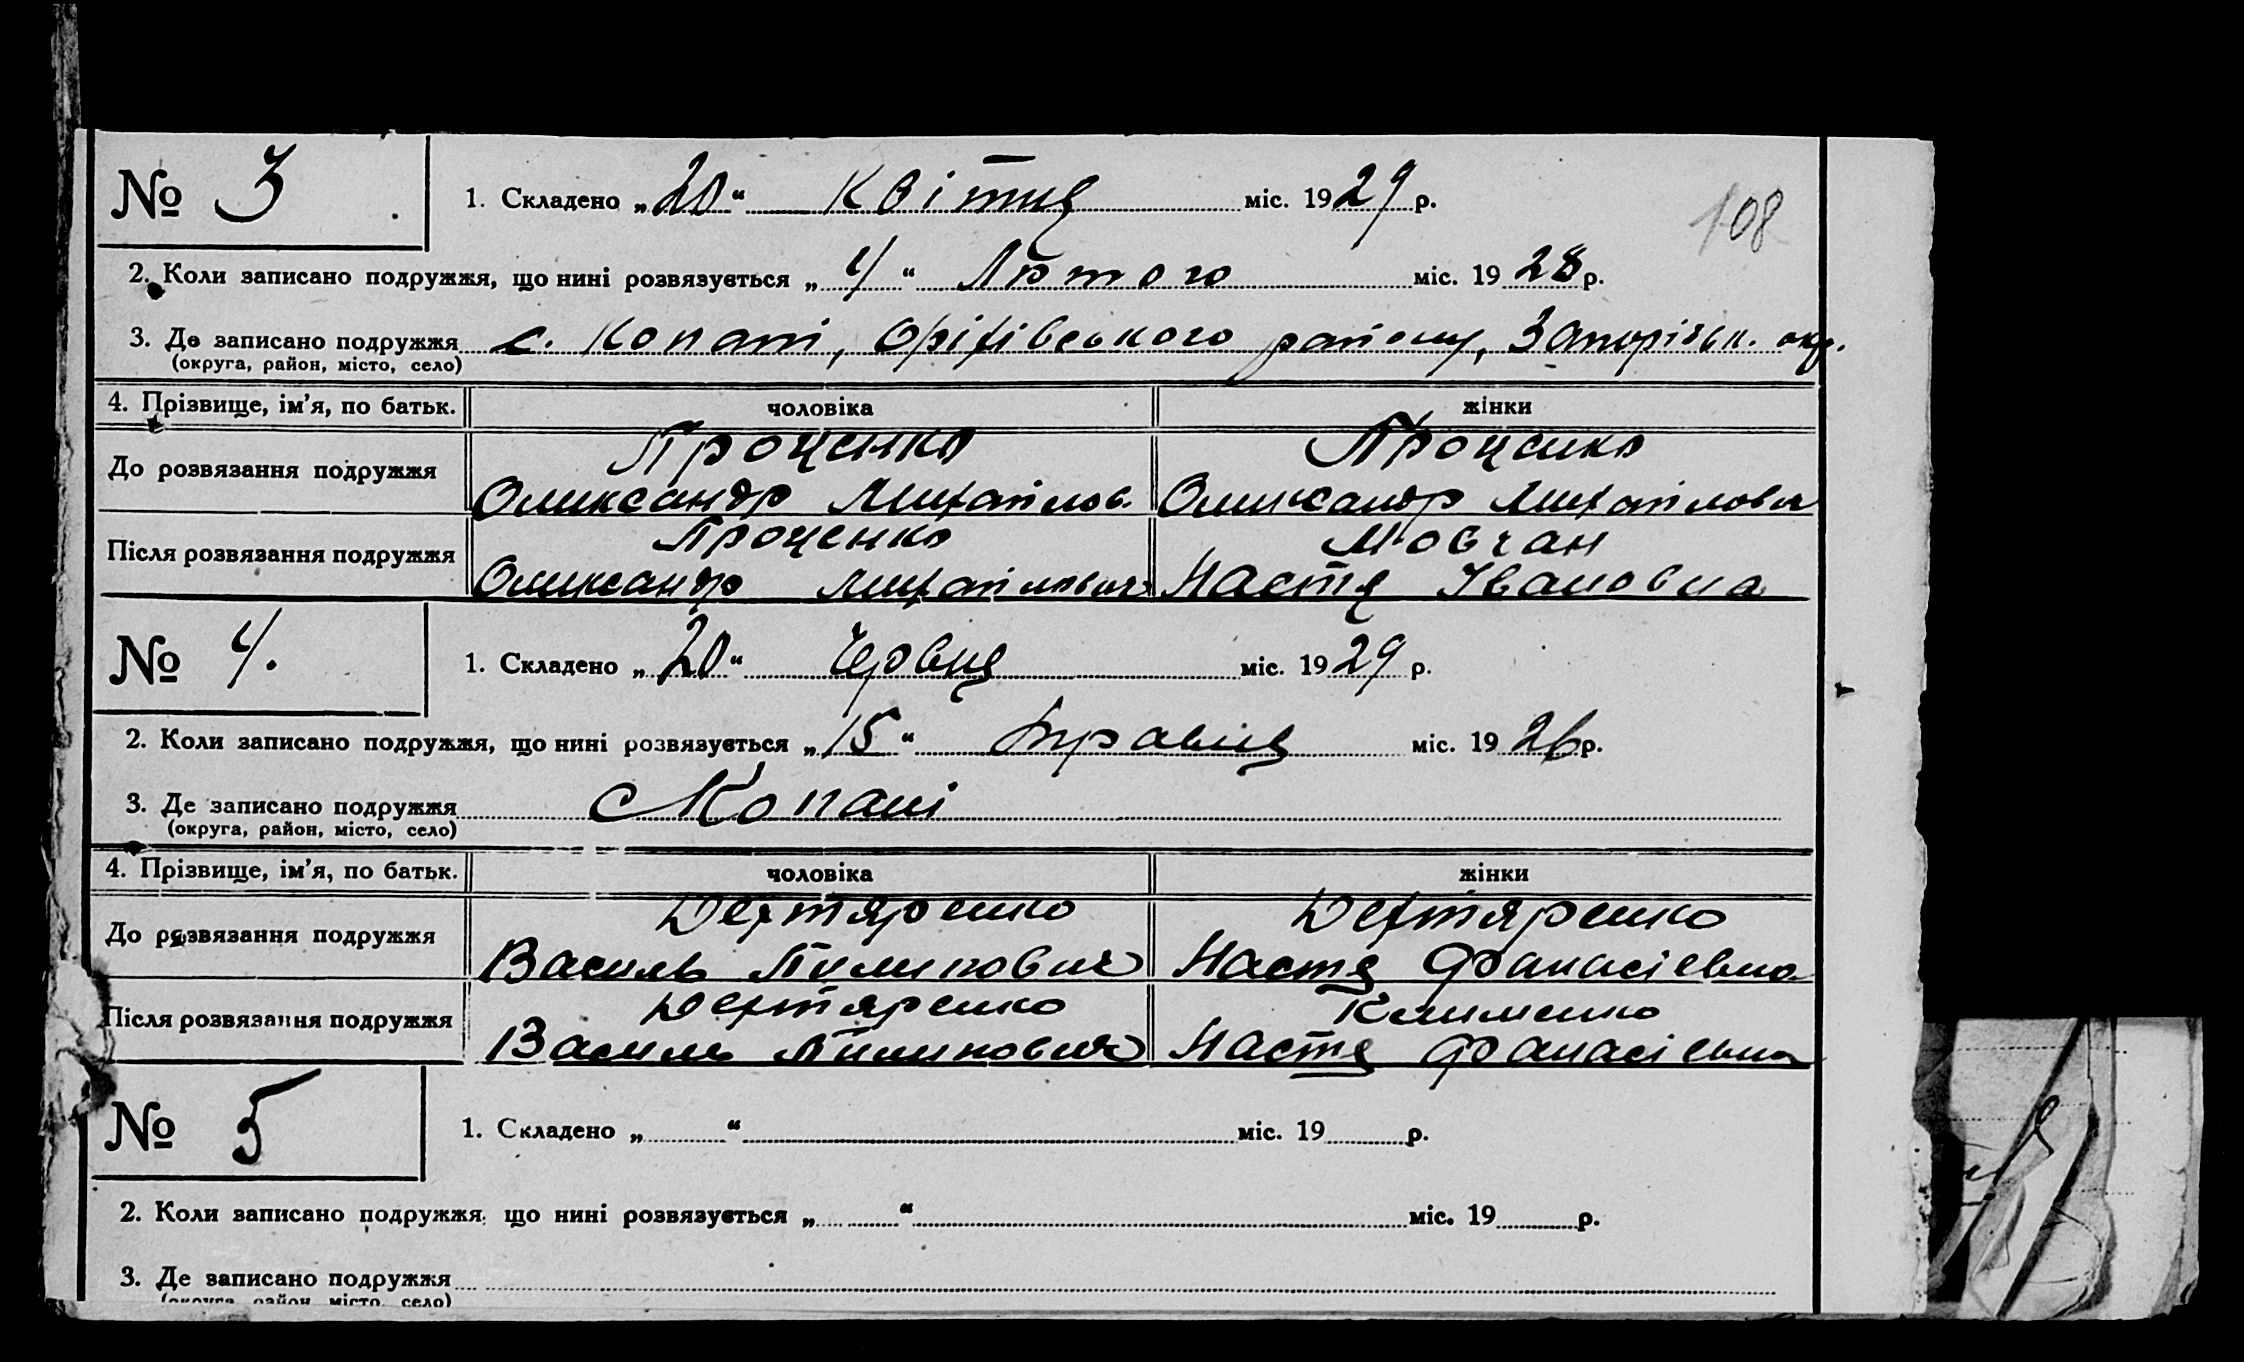 № 3
1. Складено „ 20 “ Квітня міс. 1929 р.
108
2. Коли записано подружжя, що нині розвязується „ 4 “ Лютого міс. 1928 р.
3. Де записано подружжя с. Копані, Оріхівського району, Запорізьк. окр.
(округа, район, місто, село)
4. Прізвище, ім’я, по батьк. чоловіка жінки
Проценко Проценко
До розвязання подружжя
Олександр Михайлов. Олександр Михайлович
Проценко Мовчан
Після розвязання подружжя
Олександр Михайлович Настя Івановна
№ 4.
1. Складено „ 20 “ Червня міс. 1929 р.
2. Коли записано подружжя, що нині розвязується „ 15 “ Травня міс. 1926 р.
3. Де записано подружжя с Копані
(округа, район, місто, село)
4. Прізвище, ім’я, по батьк. чоловіка жінки
Дехтяренко Дехтяренко
До розвязання подружжя
Василь Пилипович Настя Фанасієвна
Дехтяренко Клименко
Після розвязання подружжя
Василь Пилипович Настя Фанасієвна
№ 5
1. Складено „ “ міс. 19 р.
2. Коли записано подружжя, що нині розвязується „ “ міс. 19 р.
3. Де записано подружжя
(округа, район, місто, село)